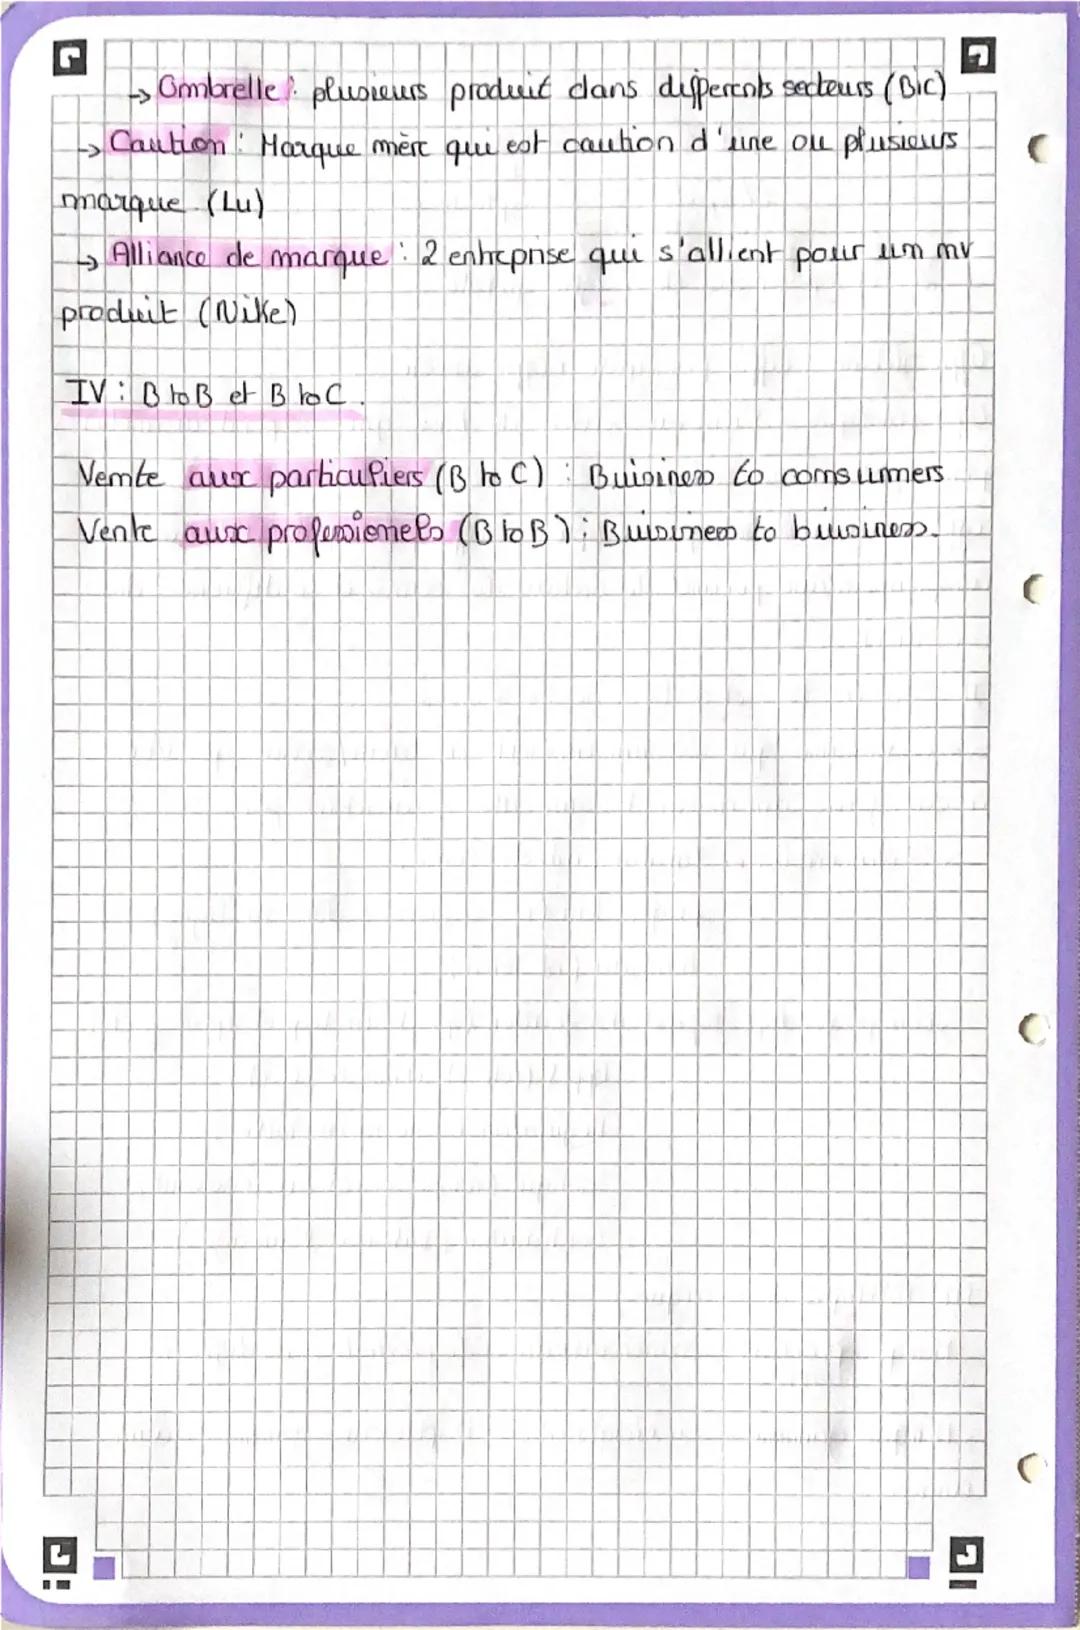 → Ombrelle : plusieurs produit dans differents secteurs (Bic)
→ Caution : Marque mère qui est caution d'une ou plusieurs
marque (Lu)
→ Alliance de marque : 2 entreprise qui s'allient pour un nv
produit (Nike)
IV : B to B et B to C.
Vente aux particuliers (B to C) : Buisiness to consummers
Vente aux professionels (B to B) : Buisiness to buisiness.